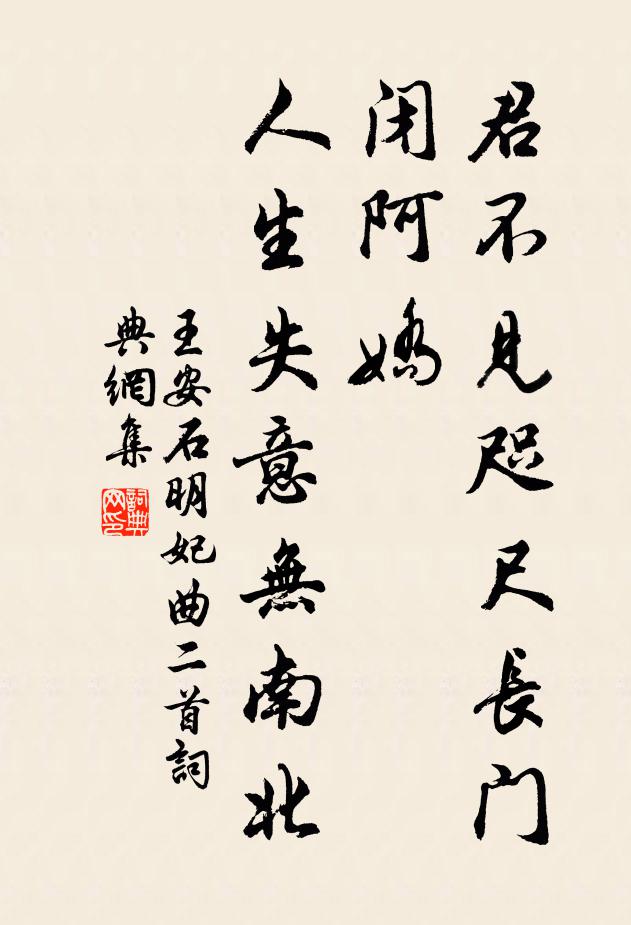 君不見咫尺長門
閉阿嬌
人生失意無南北
王安石明妃曲二首詞
典網集
詞典
网印